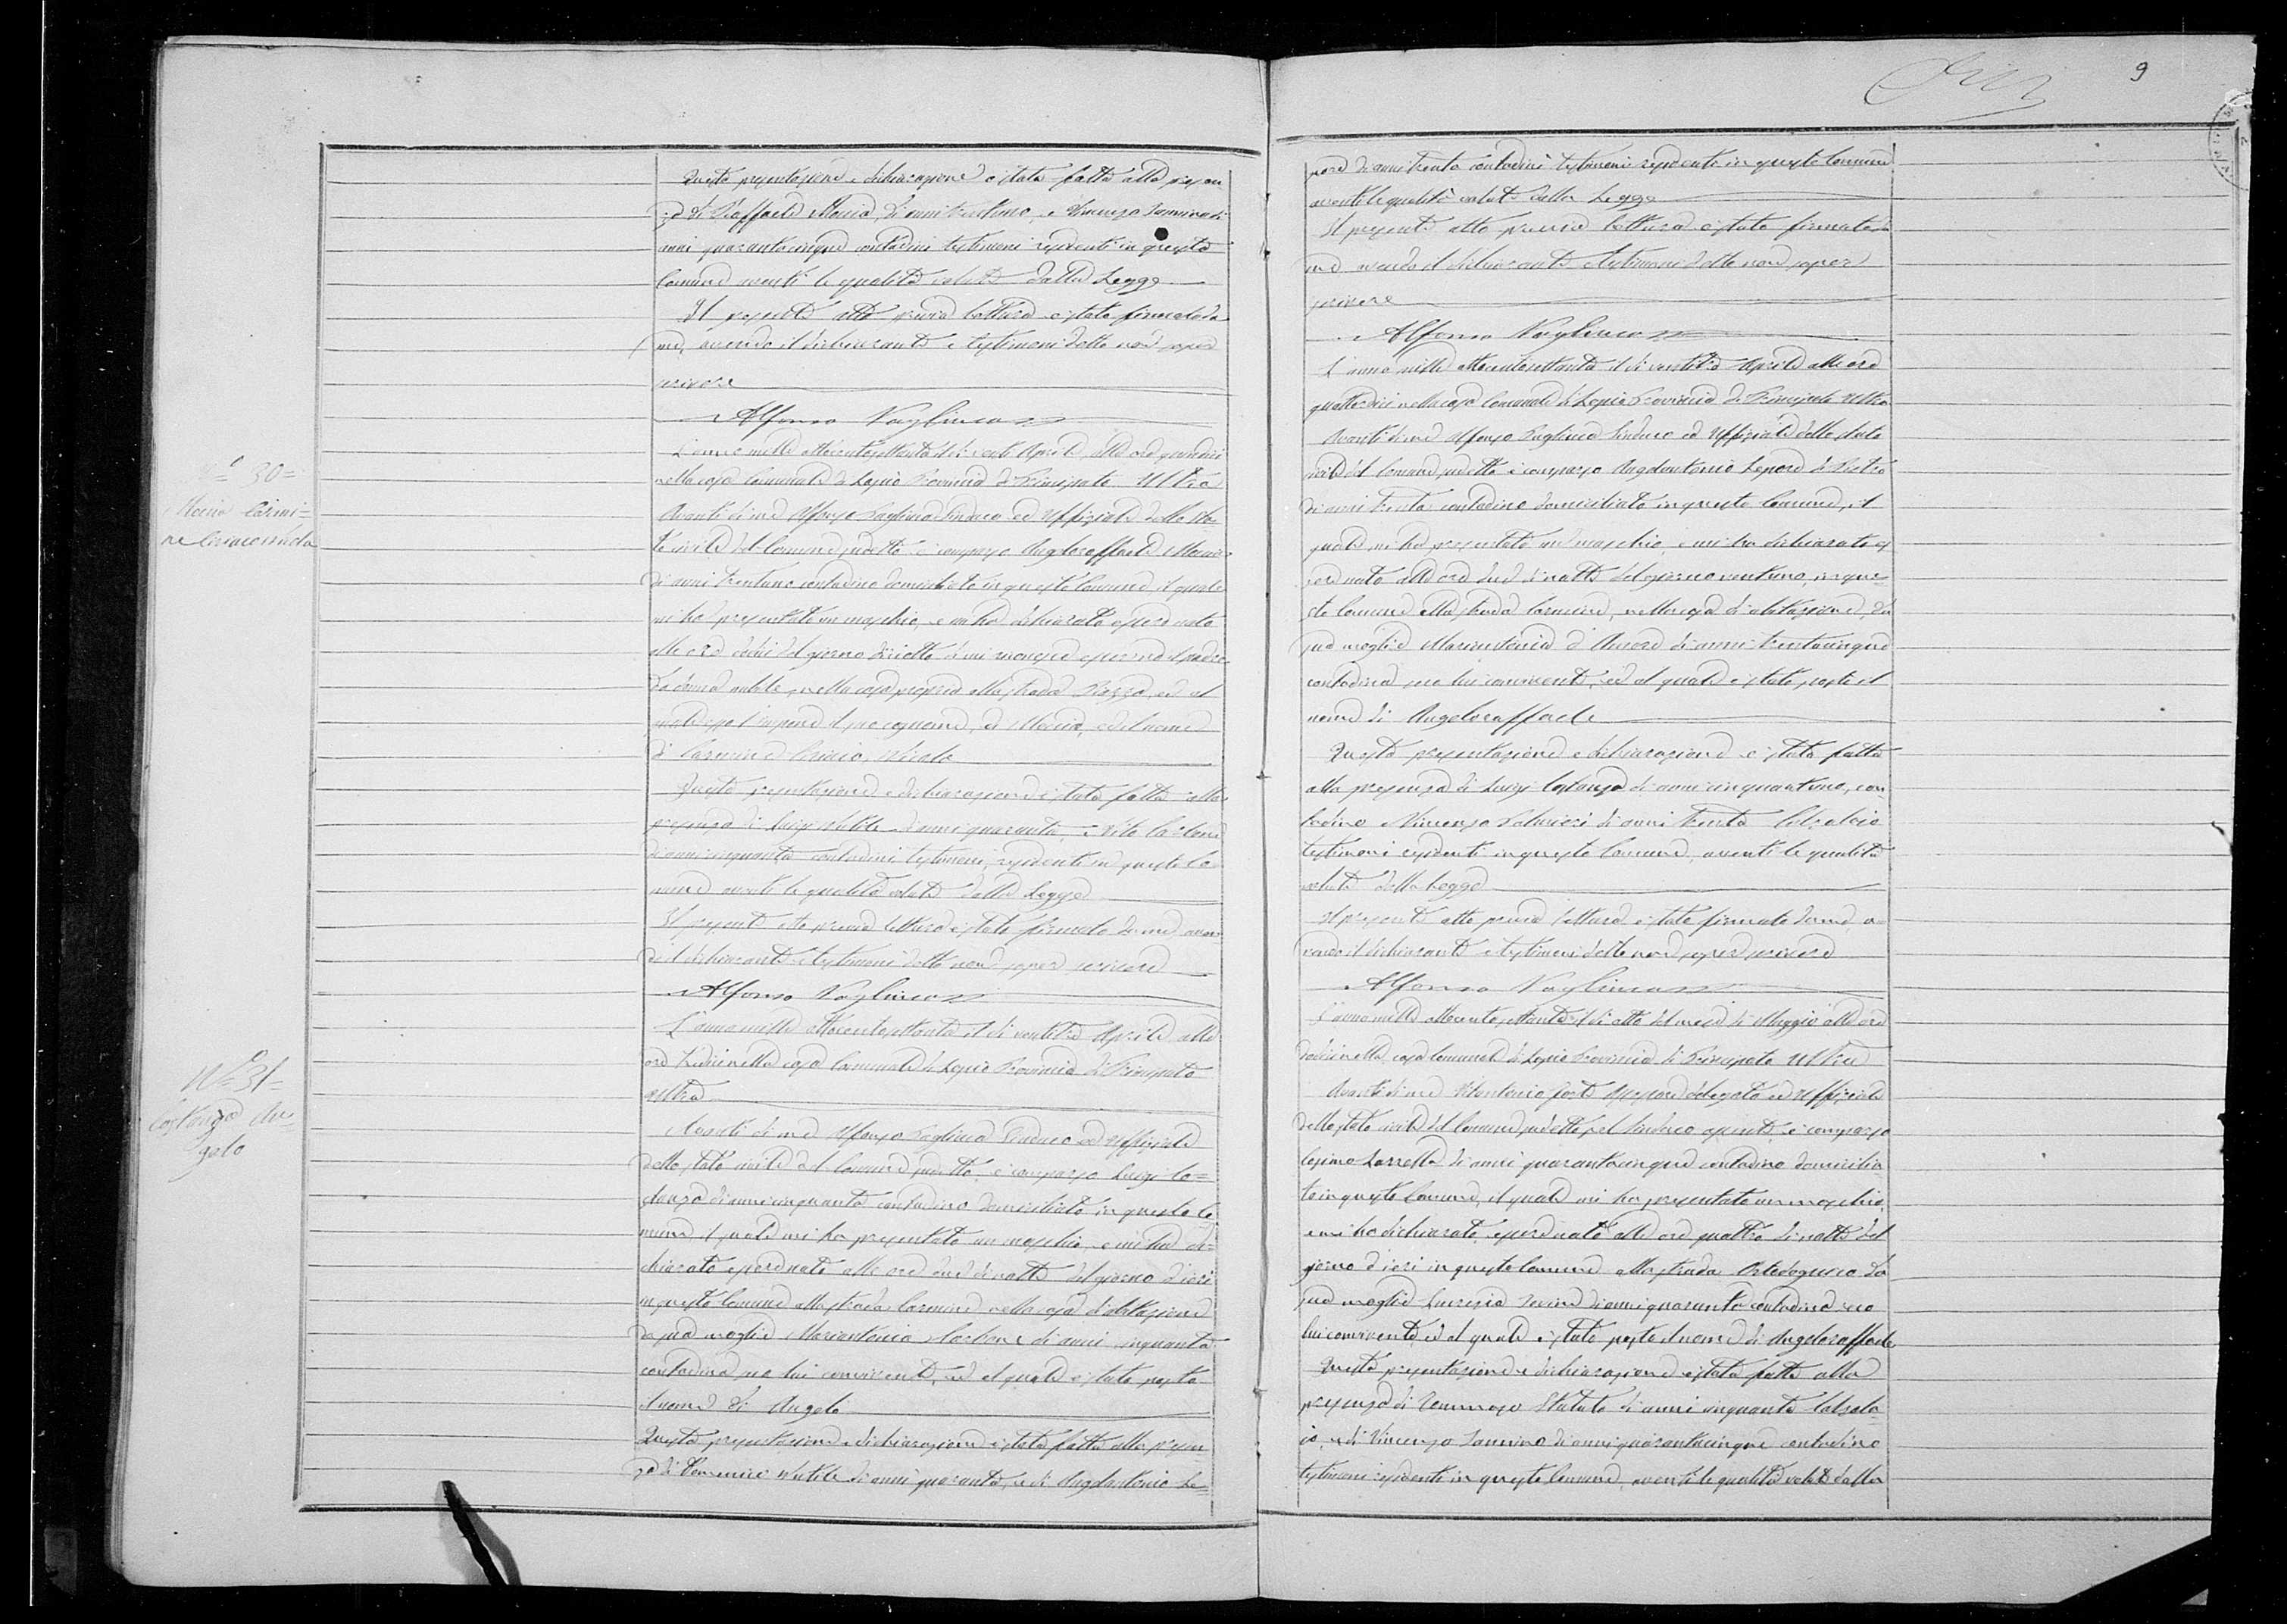 Questa presentazione e dichiarazione è stata fatta alla presen
za di Raffaele Maria di anni trentuno, e Vincenzo Iannino di
anni quarantacinque contadini testimoni residenti in questo
Comune aventi le qualità volute dalla Legge
Il presente atto previa lettura è stato firmato da
me, avendo il dichiarante e testimoni detto non saper
scrivere
Alfonso Pagliuca
N° 30=
L'anno mille ottocentosettanta il dì venti Aprile, alle ore quindici
nella casa Comunale di Lapio Provincia di Principato Ultra
Avanti di me Alfonso Pagliuca Sindaco ed Uffiziale dello Sta
to civile del Comune sudetto è comparso Angeloraffaele
di anni trentuno contadino domiciliato in questo Comune, il quale
mi ha presentato un maschio, e mi ha dichiarato essere nato
alle ore dodici del giorno diciotto
nella casa propria alla strada Piazza, ed al
di Carmine Ciriaco, Nicola
Questa presentazione e dichiarazione è stata fatta alla
presenza di Luigi Nutile di anni quaranta, e Vito Carbone
di anni cinquanta contadini testimoni, residenti in questo Co
mune aventi le qualità volute dalla Legge
Il presente atto previa lettura è stato firmato da me aven
do il dichiarante e testimoni detto non saper scrivere
Alfonso Pagliuca
N° 31=
Costanza An=
gelo
L'anno mille ottocentosettanta il dì ventitre Aprile alle
ore tredici nella casa Comunale di Lapio Provincia di Principato
Ultra
Avanti di me Alfonso Pagliuca Sindaco ed Uffiziale
dello stato civile del Comune sudetto, è comparso Luigi Co=
stanza di anni cinquanta contadino domiciliato in questo Co
mune il quale mi ha presentato un maschio, e mi ha di=
chiarato essere nato alle ore due di notte del giorno d'ieri
in questo Comune alla strada Carmine nella casa d'abitazione
da sua moglie Mariantonia Carbone di anni cinquanta
contadina seco lui convivente, ed al quale è stato posto
il nome di Angelo
Questa presentazione e dichiarazione è stata fatta alla presen
za di Domenico Nutile di anni quaranta, e di Angelantonio Le=
9
pore di anni trenta contadini testimoni residenti in questo Comune
aventi le qualità volute dalla Legge
Il presente atto previa lettura è stato firmato da
me avendo il dichiarante e testimoni detto non saper
scrivere
Alfonso Pagliuca
L'anno mille ottocentosettanta il dì ventitre Aprile alle ore
quattordici nella casa Comunale di Lapio Provincia di Principato Ultra
Avanti di me Alfonso Pagliuca Sindaco ed Uffiziale dello stato
civile del Comune sudetto è comparso Angelantonio Lepore di Pietro
di anni trenta contadino domiciliato in questo Comune, il
quale mi ha presentato un maschio, e mi ha dichiarato es
sere nato alle ore due di notte del giorno ventuno, in que
sto Comune alla strada Carmine, nella casa di abitazione, da
sua moglie Mariantonia d'Amore di anni trentacinque
contadina seco lui convivente, ed al quale è stato posto il
nome di Angeloraffaele
Questa presentazione e dichiarazione è stata fatta
alla presenza di Luigi Costanza di anni cinquantuno, con
tadino e Vincenzo di anni trenta Calzolaio
testimoni residenti in questo Comune, aventi le qualità
volute dalla Legge
Il presente atto previa lettura è stato firmato da me, a=
vendo il dichiarante e testimoni detto non saper scrivere
Alfonso Pagliuca
L'anno mille ottocentosettanta il dì otto del mese di Maggio alle ore
dodici nella casa Comunale di Lapio Provincia di Principato Ultra
Avanti di me Vitantonio Forte Assessore delegato ed Uffiziale
dello stato civile del Comune sudetto, pel Sindaco assente, è comparso
Cosimo di anni quarantacinque contadino domicilia
to in questo Comune, il quale mi ha presentato un maschio,
e mi ha dichiarato essere nato alle ore quattro di notte del
giorno d'ieri in questo Comune alla strada da
sua moglie Lucrezia di anni quaranta contadina seco
lui convivente, ed al quale è stato posto il nome di Angeloraffaele
Questa presentazione e dichiarazione è stata fatta alla
presenza di Tommaso Statuto di anni cinquanta Calzola
io, e di Vincenzo Iannino di anni quarantacinque contadino
testimoni residenti in questo Comune, aventi le qualità volute dalla